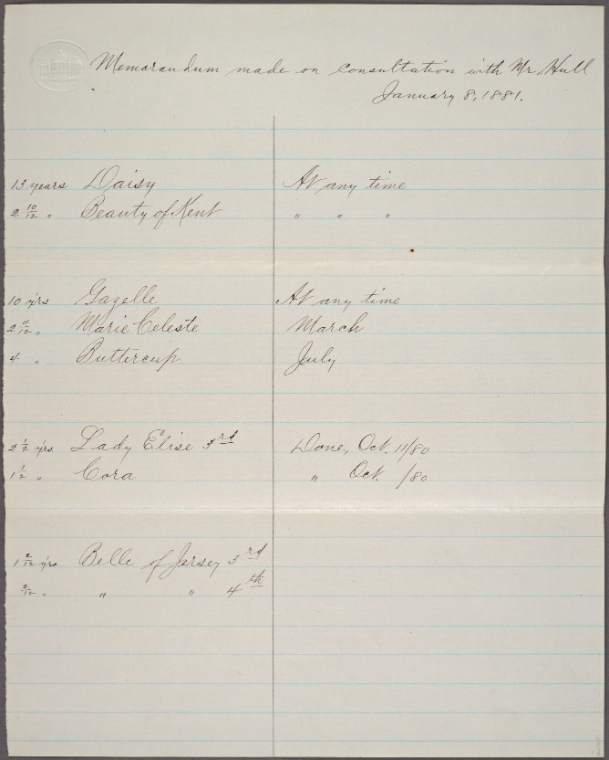 Memorandum made on consultation with Mr. Hull
January 8, 1881.
13 years Daisy At any time
2 10/12 " Beauty of Kent " " "
10 yrs Gazelle At any time
" Marie Celeste March
4 " Buttercup July
2 1/2 yrs Lady Elise 3rd Done, Oct. 11/80
1 1/2 " Cora " Oct. /80
yrs Belle of Jersey 3rd
" " " 4th